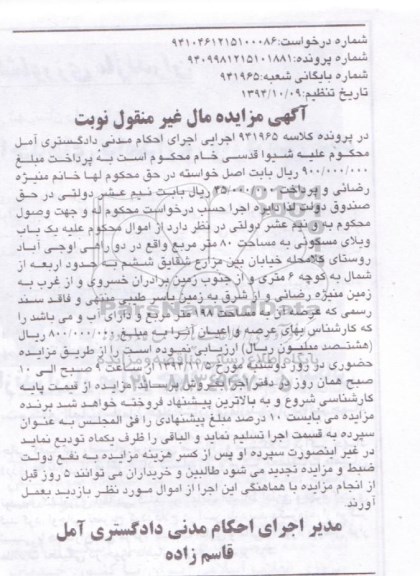 شماره درخواست:۹۴۱۰۴۶۱۲۱۵۱۰۰۰۸۶
شماره پرونده:۹۴۰۹۹۸۱۲۱۵۱۰۱۸۸۱
شماره بایگانی شعبه:۹۴۱۹۶۵
تاریخ تنظیم:۱۳۹۴/۱۰/۰۹
آگهی مزایده مال غیر منقول نوبت
در پرونده کلاسه ۹۴۱۹۶۵ اجرایی اجرای احکام مدنی دادگستری آمل
محکوم علیه شیوا قدسی خام محکوم است به پرداخت مبلغ
۹۰۰/۰۰۰/۰۰۰ ریال بابت اصل خواسته در حق محکوم لها خانم منیژه
رضائی و پرداخت ریال بابت نیم عشر دولتی در حق
صندوق دولت لذا دایره اجرا حسب درخواست محکوم له و جهت وصول
محکوم به و نیم عشر دولتی در نظر دارد از اموال محکوم علیه یک باب
ویلای مسکونی به مساحت ۸۰ متر مربع واقع در دو راهی اوجی آباد
روستای کلامحله خیابان بین مزارع شقایق ششم به حدود اربعه از
شمال به کوچه ۶ متری و از جنوب زمین برادران خسروی و از غرب به
زمین منیژه رضائی و از شرق به زمین یاسر طیبی منتهی و فاقد سند
رسمی که عرصه آن با مساحت ۱۹۸ متر مربع و دارای آب و می باشد را
که کارشناس بهای عرصه و اعیان آنرا به مبلغ ۸۰۰/۰۰۰/۰۰۰ ریال
(هشتصد میلیون ریال) ارزیابی نموده است را از طریق مزایده
حضوری در روز دوشنبه مورخ ۱۳۹۴/۱۲/۵ از ساعت ۹ صبح الی ۱۰
صبح همان روز در دفتر اجرا بفروش برساند مزایده از قیمت پایه
کارشناسی شروع و به بالاترین پیشنهاد فروخته خواهد شد برنده
مزایده می بایست ۱۰ درصد مبلغ پیشنهادی را فی المجلس به عنوان
سپرده به قسمت اجرا تسلیم نماید و الباقی را ظرف یکماه تودیع نماید
در غیر اینصورت سپرده او پس از کسر هزینه مزایده به نفع دولت
ضبط و مزایده تجدید می شود طالبین و خریداران می توانند ۵ روز قبل
از انجام مزایده با هماهنگی این اجرا از اموال مورد نظر بازدید بعمل
آورند
مدیر اجرای احکام مدنی دادگستری آمل
قاسم زاده